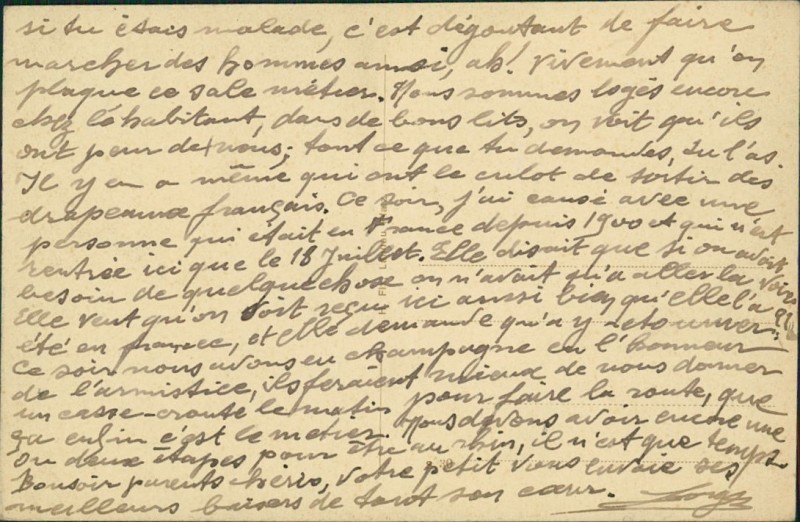 si tu étais malade, c'est dégoutant de faire
marcher des hommes ainsi, ah! vivement qu'on
plaque ce sale métier. Nous sommes logés encore
chez l'habitant, dans de bons lits, on voit qu'ils
ont peur de nous; tout ce que tu demandes, tu l'as.
Il y en a même qui ont le culot de sortir des
drapeaux français. Ce soir, j'ai causé avec une
personne qui était en France depuis 1900 et qui n'est
rentrée ici que le 18 Juillet. Elle disait que si on avait
besoin de quelque chose on n'avait qu'a aller la voir
Elle veut qu'on soit reçu ici aussi bien qu'elle l'a
été en france, et elle demande qu'a y retourner.
Ce soir nous avons eu champagne en l'honneur
de l'armistice, ils feraient mieux de nous donner
un casse-croute le matin pour faire la route, que
ça enfin c'est le metier. Nous devons avoir encore une
ou deux étapes pour être au rhin, il n'est que temps.
Bonsoir parents chéris, votre petit vous envoie ses
meilleurs baisers de tout son cœur.